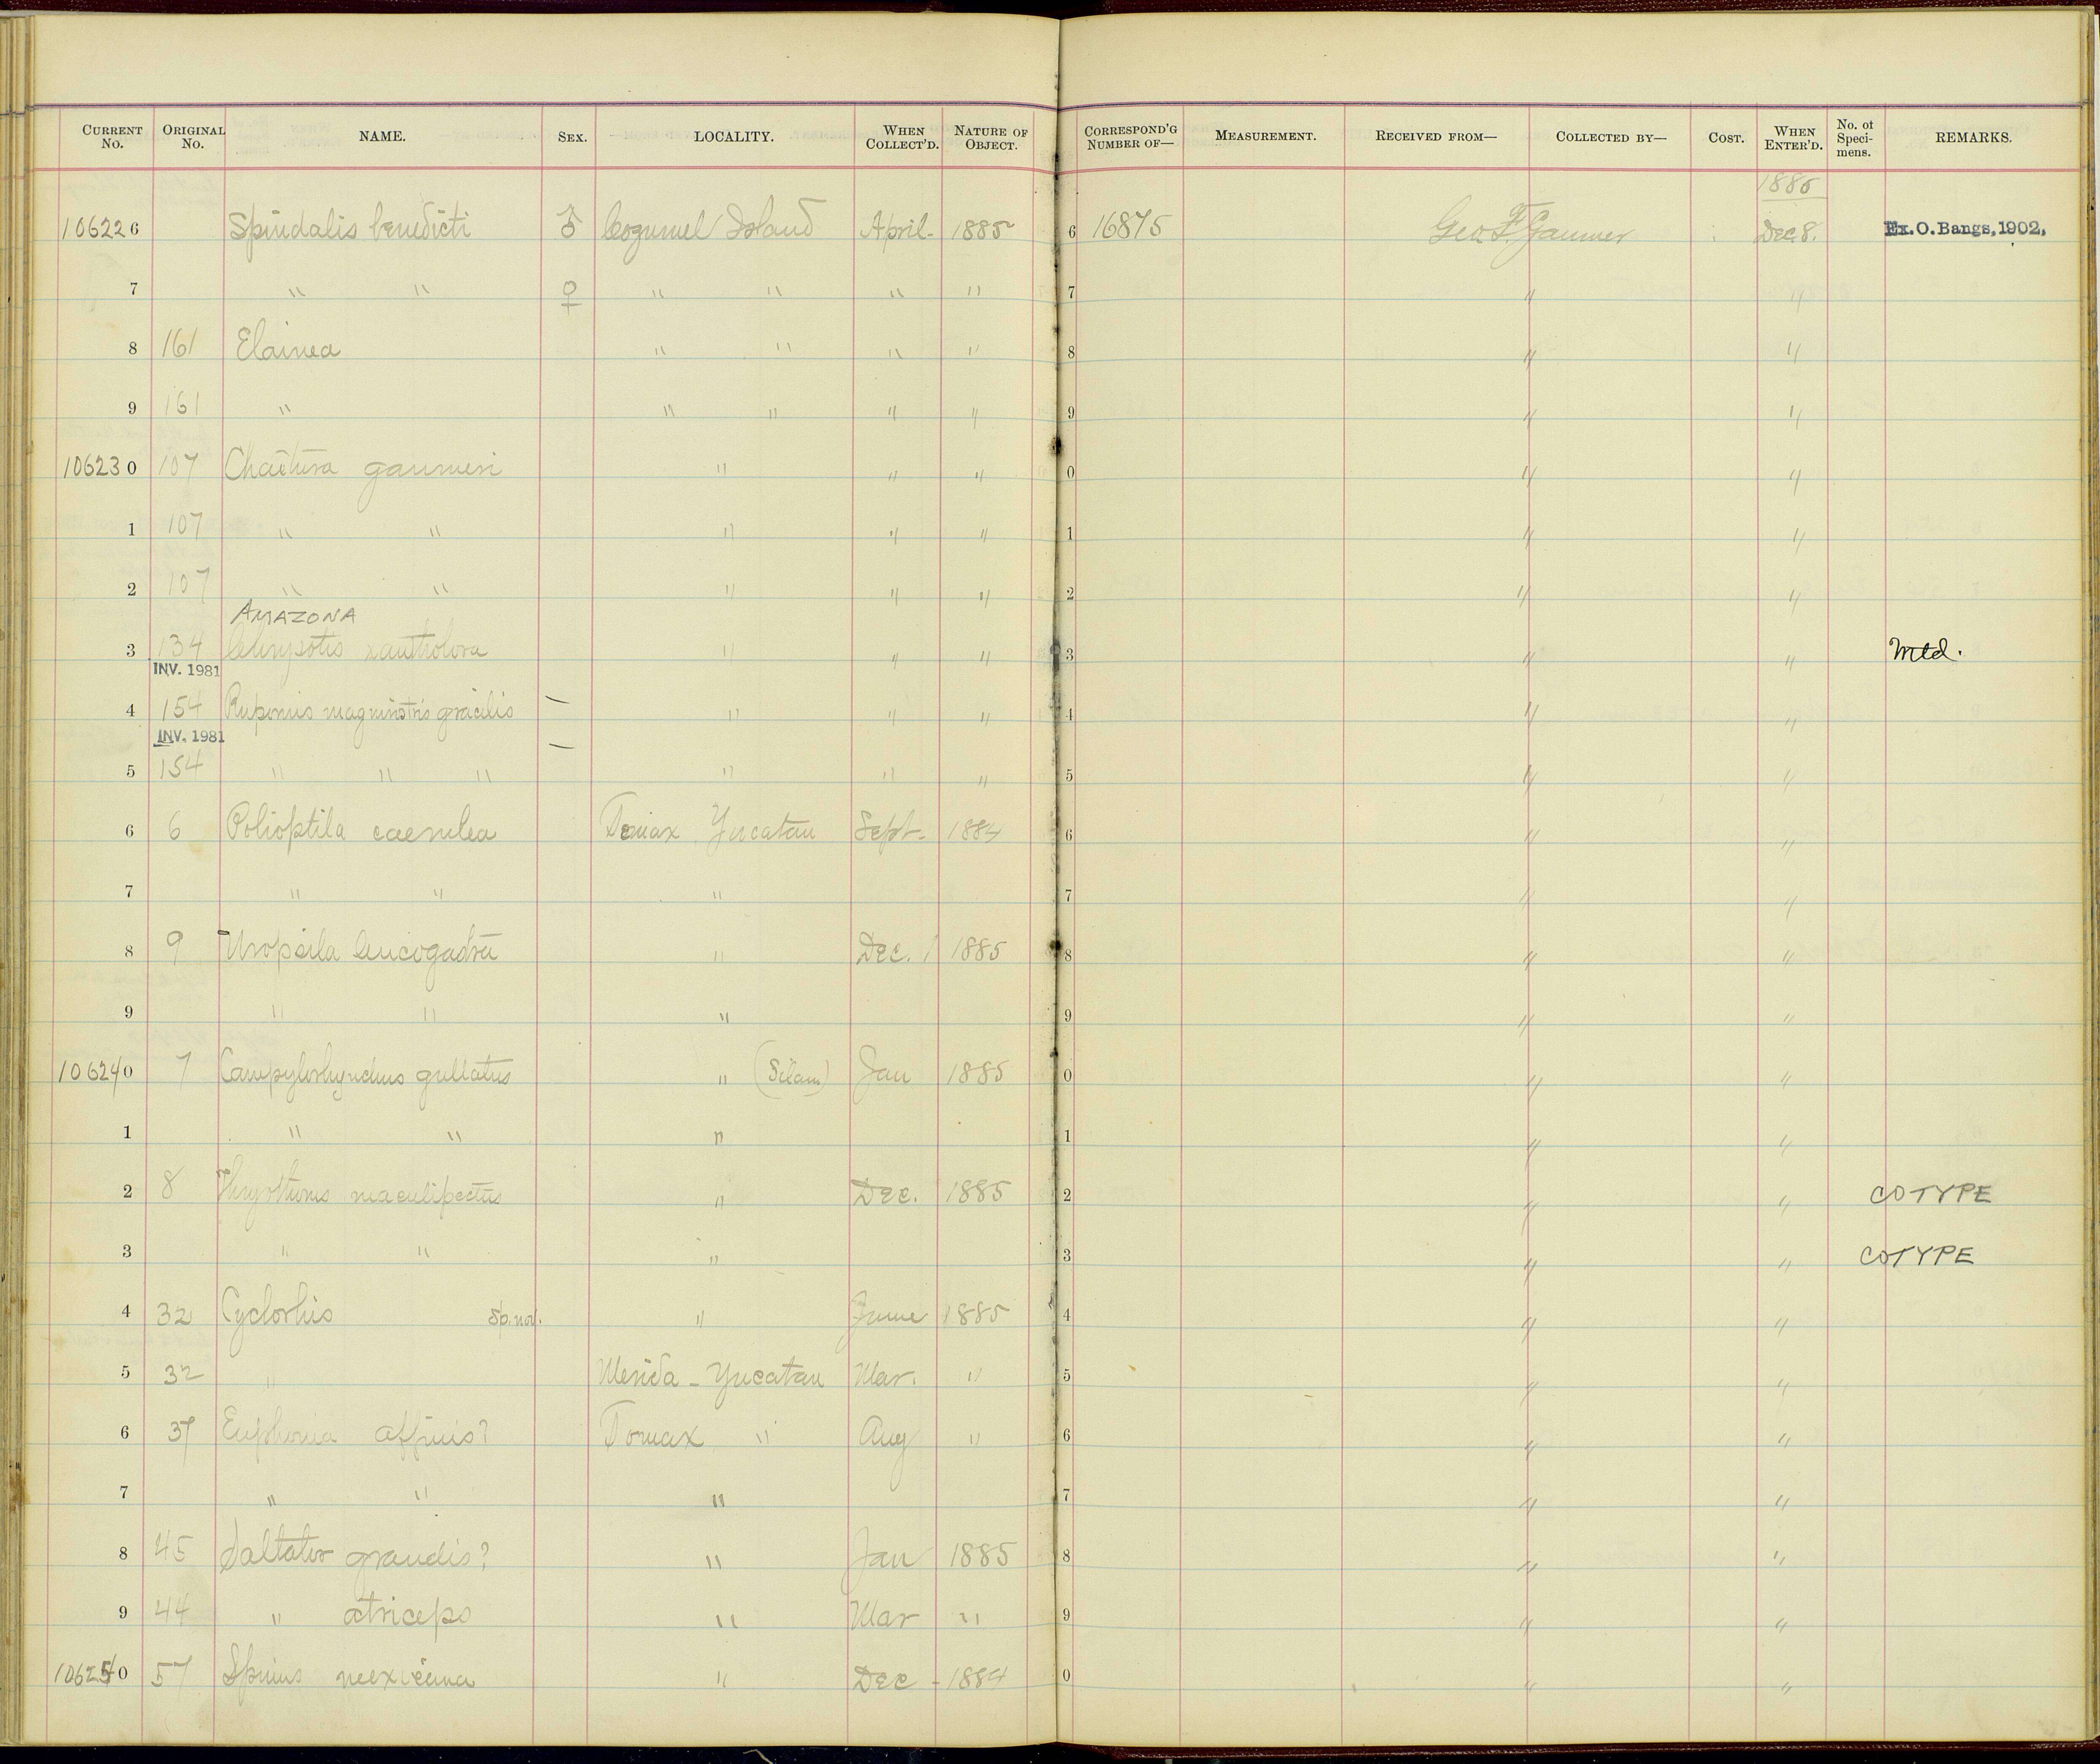 CURRENT No. ORIGINAL No. NAME. SEX. LOCALITY. WHEN COLLECT'D. NATURE OF OBJECT. CORRESPOND'G NUMBER OF— MEASUREMENT. RECEIVED FROM— COLLECTED BY— COST. WHEN ENTER'D. No. of Specimens. REMARKS.
1885
106226 Spindalis benedicti ♂ Cozumel Island April. 1885 6 16875 Geo. F. Gaumer Dec 8. Ex. O. Bangs, 1902.
7 " " ♀ " " " " 7 " "
8 161 Elainea " " " " 8 " "
9 161 " " " " " 9 " "
106230 107 Chaetura gaumeri " " " 0 " "
1 107 " " " " " 1 " "
2 107 " " " " " 2 " "
AMAZONA
3 134 Chrysotis xantholora " " " 3 " " Mtd.
INV. 1981
4 154 Rupornis magnirostris gracilis — " " " 4 " "
INV. 1981 —
5 154 " " " " " " 5 " "
6 6 Polioptila caerulea Temax Yucatan Sept. 1884 6 " "
7 " " " 7 " "
8 9 Uropsila leucogastra " Dec. 1885 8 " "
9 " " " 9 " "
106240 7 Campylorhynchus guttatus " (Silam) Jan 1885 0 " "
1 " " " 1 " "
2 8 Thryothorus maculipectus " Dec. 1885 2 " " COTYPE
3 " " " 3 " " COTYPE
4 32 Cyclorhis sp. nov. " June 1885 4 " "
5 32 " Merida - Yucatan Mar. " 5 " "
6 37 Euphonia affinis? Temax " Aug " 6 " "
7 " " " 7 " "
8 45 Saltator grandis? " Jan 1885 8 " "
9 44 " atriceps " Mar " 9 " "
106250 57 Spinus mexicana " Dec - 1884 0 " "